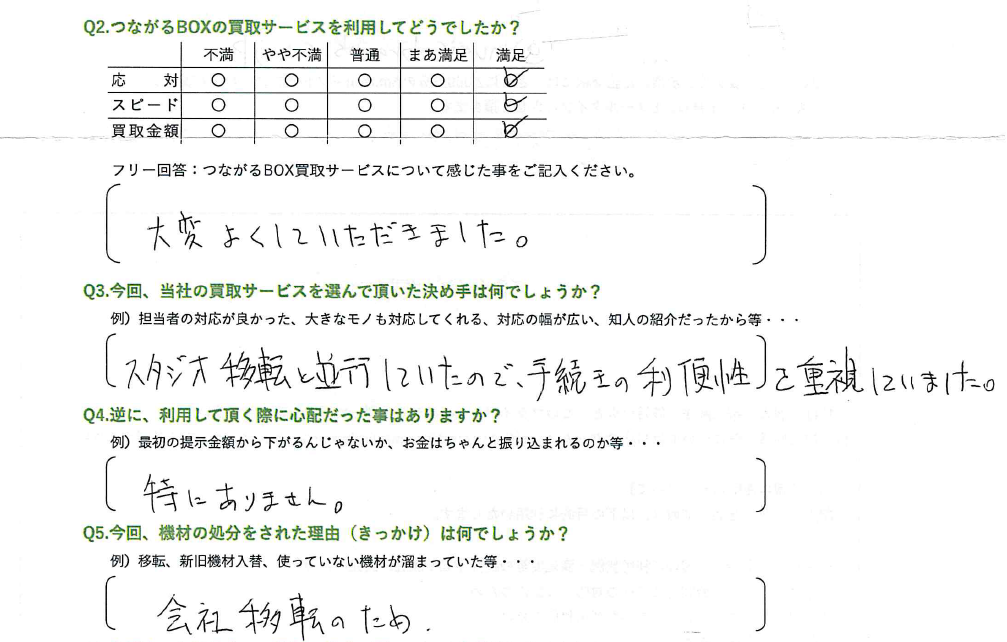 Q2.つながるBOXの買取サービスを利用してどうでしたか？
不満 やや不満 普通 まあ満足 満足
応 対
スピード
買取金額
フリー回答：つながるBOX買取サービスについて感じた事をご記入ください。
大変よくしていただきました。
Q3.今回、当社の買取サービスを選んで頂いた決め手は何でしょうか？
例）担当者の対応が良かった、大きなモノも対応してくれる、対応の幅が広い、知人の紹介だったから等・・・
スタジオ移転と並行していたので、手続きの利便性を重視していました。
Q4.逆に、利用して頂く際に心配だった事はありますか？
例）最初の提示金額から下がるんじゃないか、お金はちゃんと振り込まれるのか等・・・
特にありません。
Q5.今回、機材の処分をされた理由（きっかけ）は何でしょうか？
例）移転、新旧機材入替、使っていない機材が溜まっていた等・・・
会社移転のため.